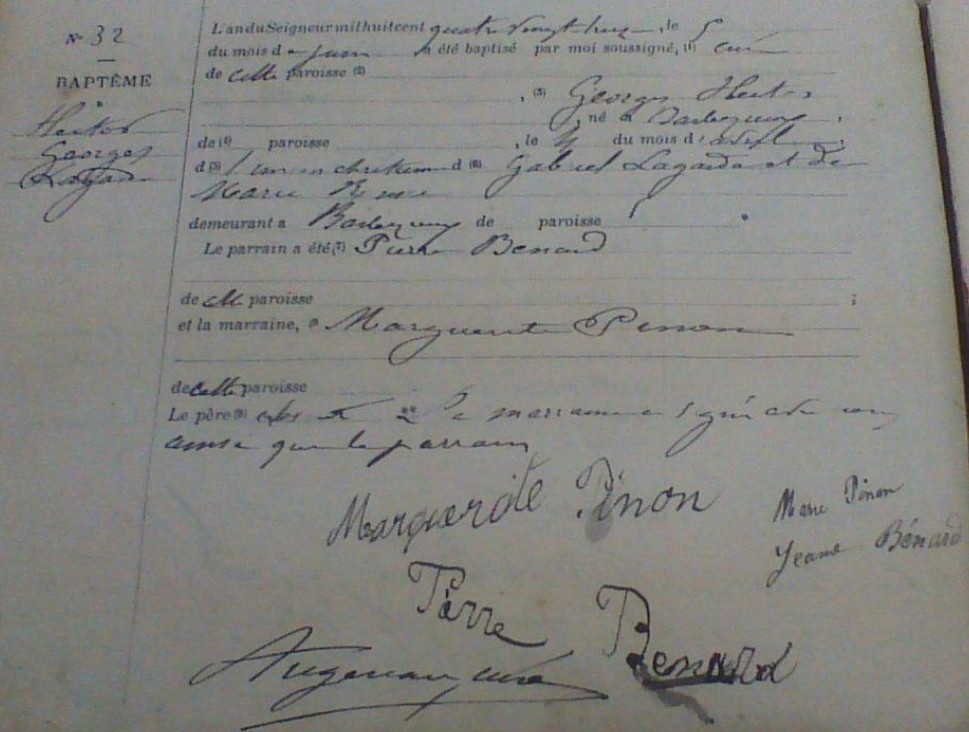 Nº 32
BAPTÊME
Hector
Georges
Lagarde
L'an du Seigneur mil huit cent quatre vingt treize, le 5
du mois de juin a été baptisé par moi soussigné, (1) curé
de cette paroisse (2)
, (3) Georges Hector
, né à Barbezieux,
de (4) paroisse , le 4 du mois d'avril,
d (5) l'union chrétienne d (6) Gabriel Lagarde et de
Marie
demeurant à Barbezieux de paroisse
Le parrain a été (7) Pierre Benard
de cette paroisse ;
et la marraine, (8) Marguerite Pinon
de cette paroisse
Le père (9) La marraine a signé avec nous
ainsi que le parrain
Marguerite Pinon
Marie Pinon
Jeanne Bénard
Pierre Benard
curé